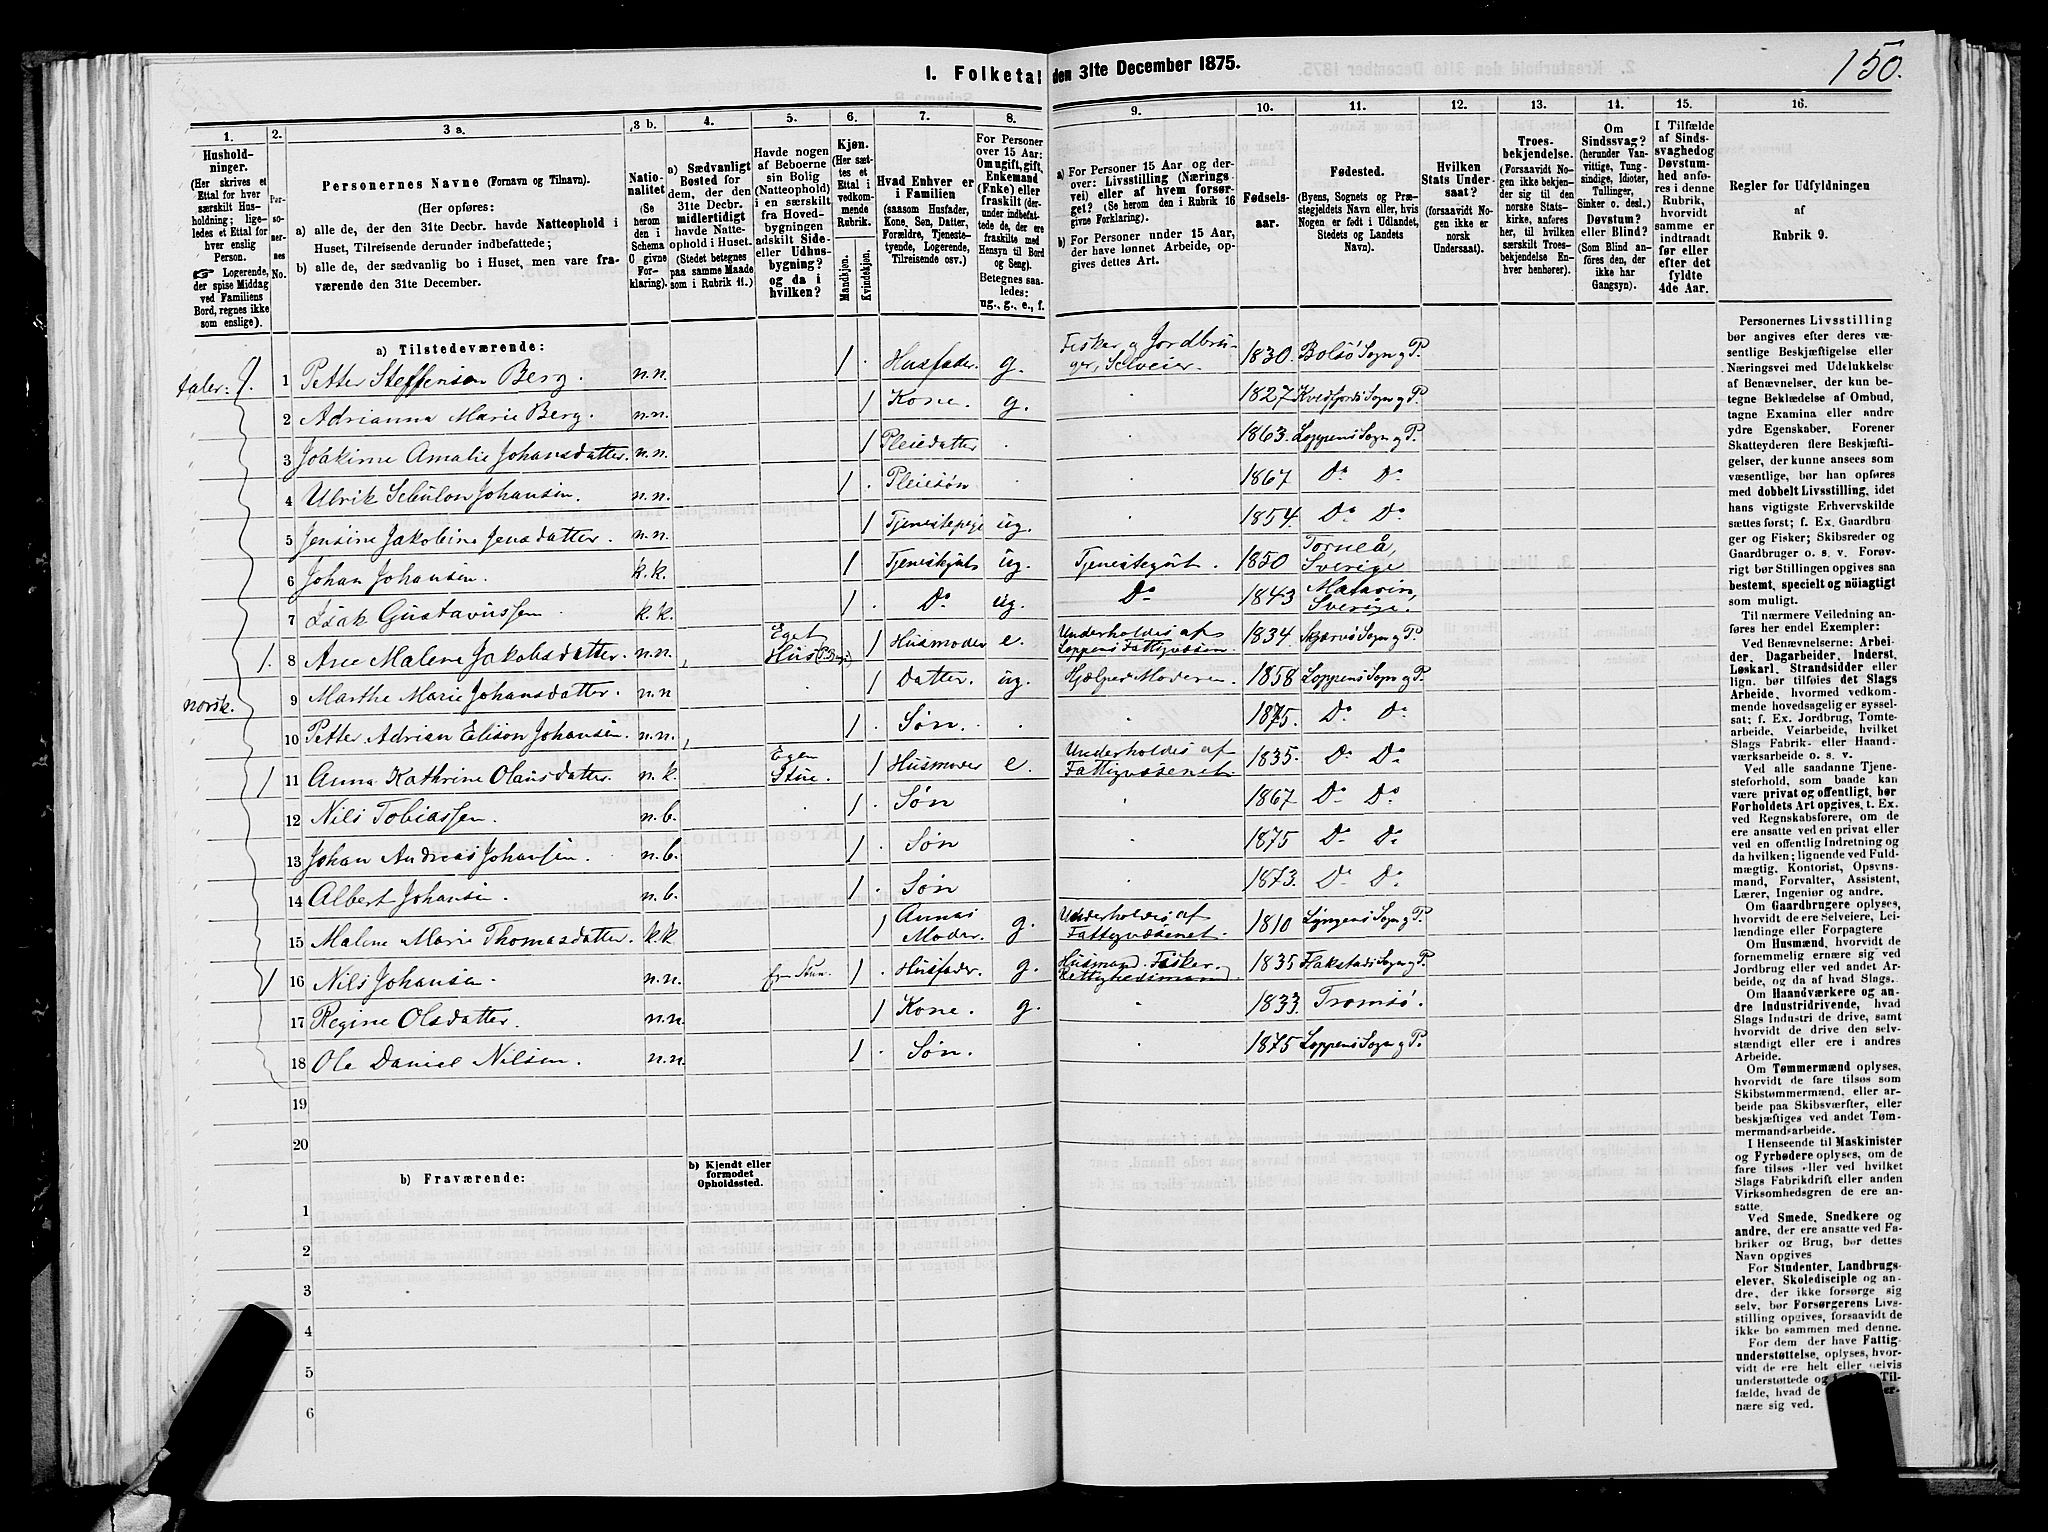 150.
1. Folketal den 31te December 1875.
1. 2. 3 a. 3 b. 4. 5. 6. 7. 8. 9. 10. 11. 12. 13. 14. 15. 16.
Hushold-
ninger.
(Her skrives et
Ettal for hver
særskilt Hus-
holdning; lige-
ledes et Ettal for
hver enslig
Person.
☞ Logerende,
der spise Middag
ved Familiens
Bord, regnes ikke
som enslige).
Per-
so-
ner-
nes
No.
Personernes Navne (Fornavn og Tilnavn).
(Her opføres:
a) alle de, der den 31te Decbr. havde Natteophold i
Huset, Tilreisende derunder indbefattede;
b) alle de, der sædvanlig bo i Huset, men vare fra-
værende den 31te December.
Natio-
nalitet
(Se
herom
den i
Schema
C givne
For-
klaring).
a) Sædvanligt
Bosted for
dem, der den
31te Decbr.
midlertidigt
havde Natte-
ophold i Huset.
(Stedet betegnes
paa samme Maade
som i Rubrik 11.)
Havde nogen
af Beboerne
sin Bolig
(Natteophold)
i en særskilt
fra Hoved-
bygningen
adskilt Side-
eller Udhus-
bygning?
og da i
hvilken?
Kjøn.
(Her sæt-
tes et
Ettal i
vedkom-
mende
Rubrik.
Mandkjøn.
Kvindekjøn.
Hvad Enhver er
i Familien
(saasom Husfader,
Kone, Søn, Datter,
Forældre, Tjeneste-
tyende, Logerende,
Tilreisende osv.)
For Personer
over 15 Aar:
Om ugift, gift,
Enkemand
(Enke) eller
fraskilt (der-
under indbefat-
tede de, der ere
fraskilte med
Hensyn til Bord
og Seng).
Betegnes saa-
ledes:
ug., g., e., f.
a) For Personer 15 Aar og der-
over: Livsstilling (Nærings-
vei) eller af hvem forsør-
get? (Se herom den i Rubrik 16
givne Forklaring).
b) For Personer under 15 Aar,
der have lønnet Arbeide, op-
gives dettes Art.
Fødsels-
aar.
Fødested.
(Byens, Sognets og Præ-
stegjeldets Navn eller, hvis
Nogen er født i Udlandet,
Stedets og Landets
Navn).
Hvilken
Stats Under-
saat?
(forsaavidt No-
gen ikke er
norsk
Undersaat).
Troes-
bekjendelse.
(Forsaavidt No-
gen ikke bekjen-
der sig til den
norske Stats-
kirke, anføres
her, til hvilken
særskilt Troes-
bekjendelse En-
hver henhører).
Om
Sindssvag?
(herunder Van-
vittige, Tung-
sindige, Idioter,
Tullinger,
Sinker o. desl.)
Døvstum?
eller Blind?
(Som Blind an-
føres den, der
ikke har
Gangsyn).
I Tilfælde
af Sinds-
svaghed og
Døvstum-
hed anfø-
res i denne
Rubrik,
hvorvidt
samme er
indtraadt
før eller
efter det
fyldte
4de Aar.
Regler for Udfyldningen
af
Rubrik 9.
a) Tilstedeværende:
taler
norsk.
1 Petter Steffensen Berg. n.n. 1 Husfader. g. Fisker og Jordbru-
ger, Selveier. 1830. Bolsø Sogn og P.
2 Adrianna Marie Berg. n.n. 1 Kone. g. 1827 Kvedfjords Sogn og P.
3 Joakime Amalie Johansdatter. n.n. 1 Pleiedatter 1863. Loppens Sogn og P.
4 Ulrik Sebulon Johansen. n.n. 1 Pleiesøn 1867 Do Do
5 Jensine Jakobine Jensdatter. n.n. 1 Tjenestepige ug. 1854. Do Do
6 Johan Johansen. k.k. 1 Tjenestegut ug. Tjenestegut. 1850 Torneå, Sverige
7 Isak Gustavussen k.k. 1 Do ug. Do 1843 Sverige.
1. 8 Ane Malene Jakobsdatter. n.n. Eget Hus 1 Husmoder e. Underholdes af
Loppens Fattigvæsen 1834. Skjervø Sogn og P.
9 Marthe Marie Johansdatter. n.n 1 Datter. ug. Hjælper Moderen. 1858 Loppens Sogn og P.
10 Petter Adrian Elison Johansen. n.n. 1 Søn. 1875. Do Do
1 11 Anna Kathrine Olausdatter. n.k. Egen Stue. 1 Husmoder e. Underholdes af
Fattigvæsenet. 1835. Do Do
12 Nils Tobiassen. n.b. 1 Søn 1867 Do Do
13 Johan Andreas Johansen. n.b. 1 Søn 1875 Do Do
14 Albert Johansen. n.b. 1 Søn 1873. Do Do
15 Malene Marie Thomasdatter. k.k 1 Annas Moder. g. Underholdes af
Fattigvæsenet. 1810 Lyngens Sogn og P.
1 16 Nils Johansen. n.n. Egen Stue. 1 Husfader. g. Husmand. Fisker.
Rettighedsmand 1835 Flakstads Sogn og P.
17 Regine Olsdatter. n.n. 1 Kone. g. 1833. Tromsø.
18 Ole Daniel Nilsen. n.n. 1 Søn. 1875 Loppens Sogn og P.
19
20
b) Fraværende:
b) Kjendt eller
formodet
Opholdssted.
1
2
3
4
5
6
Personernes Livsstilling
bør angives efter deres væ-
sentlige Beskjæftigelse eller
Næringsvei med Udelukkelse
af Benævnelser, der kun be-
tegne Beklædelse af Ombud,
tagne Examina eller andre
ydre Egenskaber. Forener
Skatteyderen flere Beskjæfti-
gelser, der kunne ansees som
væsentlige, bør han opføres
med dobbelt Livsstilling, idet
hans vigtigste Erhvervskilde
sættes først; f. Ex. Gaardbru-
ger og Fisker; Skibsreder og
Gaardbruger o. s. v. Forøv-
rigt bør Stillingen opgives saa
bestemt, specielt og nöiagtigt
som muligt.
Til nærmere Veiledning an-
føres her endel Exempler:
Ved Benævnelserne: Arbei-
der, Dagarbeider, Inderst,
Løskarl, Strandsidder eller
lign. bør tilføies det Slags
Arbeide, hvormed vedkom-
mende hovedsagelig er syssel-
sat; f. Ex. Jordbrug, Tomte-
arbeide, Veiarbeide, hvilket
Slags Fabrik- eller Haand-
værksarbeide o. s. v.
Ved alle saadanne Tjene-
steforhold, som baade kan
være privat og offentligt, bør
Forholdets Art opgives, t. Ex.
ved Regnskabsførere, om de
ere ansatte ved en privat eller
ved en offentlig Indretning og
da hvilken; lignende ved Fuld-
mægtig, Kontorist, Opsyns-
mand, Forvalter, Assistent,
Lærer, Ingeniør og andre.
Om Gaardbrugere oplyses,
hvorvidt de ere Selveiere, Lei-
lændinge eller Forpagtere
Om Husmænd, hvorvidt de
fornemmelig ernære sig ved
Jordbrug eller ved andet Ar-
beide, og da af hvad Slags.
Om Haandværkere og an-
dre Industridrivende, hvad
Slags Industri de drive, samt
hvorvidt de drive den selv-
stændigt eller ere i andres
Arbeide.
Om Tømmermænd oplyses,
hvorvidt de fare tilsøs som
Skibstømmermænd, eller ar-
beide paa Skibsværfter, eller
beskjæftiges ved andet Tøm-
mermandsarbeide.
I Henseende til Maskinister
og Fyrbødere oplyses, om de
fare tilsøs eller ved hvilket
Slags Fabrikdrift eller anden
Virksomhedsgren de ere an-
satte.
Ved Smede, Snedkere og
andre, der ere ansatte ved Fa-
briker og Brug, bør dettes
Navn opgives
For Studenter, Landbrugs-
elever, Skoledisciple og an-
dre, der ikke forsørge sig
selv, bør Forsørgerens Livs-
stilling opgives, forsaavidt de
ikke bo sammen med denne.
For dem, der have Fattig-
understøttelse, oplyses, hvor-
vidt de ere helt eller delvis
understøttede og i Til-
fælde, hvad de er-
nære sig ved.